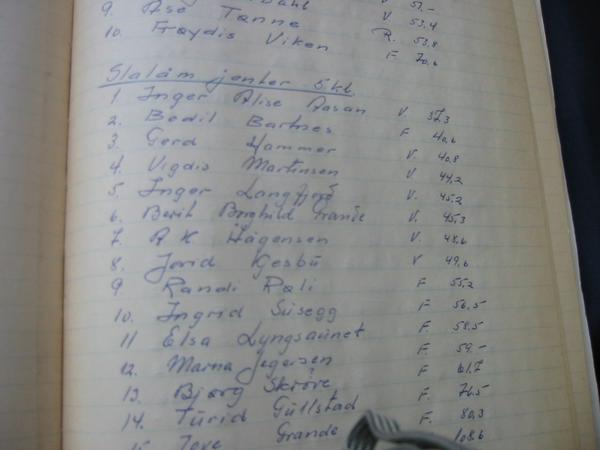 Dahl V 51.-
9. Åse Tanne V 53,4
10. Frøydis Viken R. 53,8
F 70,6
Slalåm jenter 5.kl.
1. Inger Alise Aasan V. 37,3
2. Bodil Bartnes F 40,6
3. Gerd Hammer V. 40,8
4. Vigdis Martinsen V 44,2
5. Inger Langfjord V. 45,2
6. Berit Borghild Grande V. 45,3
7. A K Hågensen V. 48,6
8. Jorid Gesbu V 49,6
9 Randi Rali F 55,2
10. Ingrid Susegg F 56,5
11 Elsa Lyngsaunet F 58,5
12. Marna Jegersen F. 59.-
13. Bjørg Skrøve F 61,7
14. Turid Gullstad F. 76,5
15 Tove Grande F. 80,3
108,6